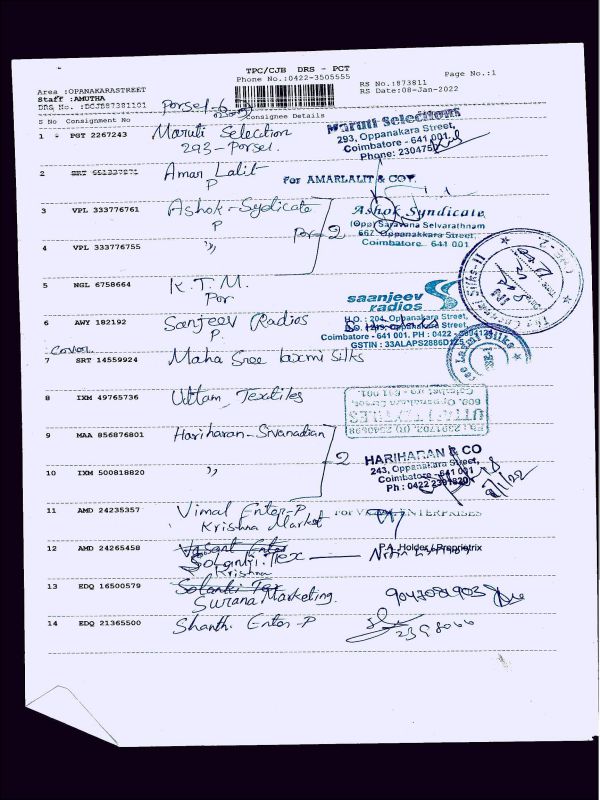 TPC/CJB DRS - PCT
Phone No.:0422-3505555
Page No.:1
Area :OPANAKARASTREET
Staff :AMUTHA
DRS, No. :DCJB87381101
RS No.:873811
RS Date:08-Jan-2022
Porsel-6
S No Consignment No Consignee Details
1 PGT 2267243 Maruti Selection
293-Porsel.
Maruti Selections
293, Oppanakara Street,
Coimbatore - 641 001
Phone: 230475
2 SRT Amar Lalit
P
For AMARLALIT & COY.
3 VPL 333776761 Ashok-Sydicate
P
Por-2
Ashok Syndicate
(Opp) Saravana Selvarathnam
667, Oppanakkara Street,
Coimbatore - 641 001
4 VPL 333776755 ,,
5 NGL 6758664 K.T.M.
Por
6 AWY 182192 Sanjeev Radios
P.
saanjeev
radios
H.O. : 204, Oppanakara Street,
Oppanakara Street,
Coimbatore - 641 001, PH : 0422 -
GSTIN : 33ALAPS2886D1Z5
Cover
7 SRT 14559924 Maha Sree laxmi Silks
8 IXM 49765736 Uttam Textiles
UTTAM TEXTILES
9 MAA 856876801 Hariharan-Sivanadian
2
10 IXM 500818820 ,,
HARIHARAN & CO
243, Oppanakara Street,
Coimbatore - 641 001
Ph : 0422
8/1/22
11 AMD 24235357 Vimal Enter-P
Krishna Market
For VIMAL ENTERPRISES
12 AMD 24265458 Vasant Enter
Solanki Tex
Krishna
P.A. Holder / Proprietrix
13 EDQ 16500579 Solanki Tex
Surana Marketing.
9047081903
14 EDQ 21365500 Shanth. Enter-P